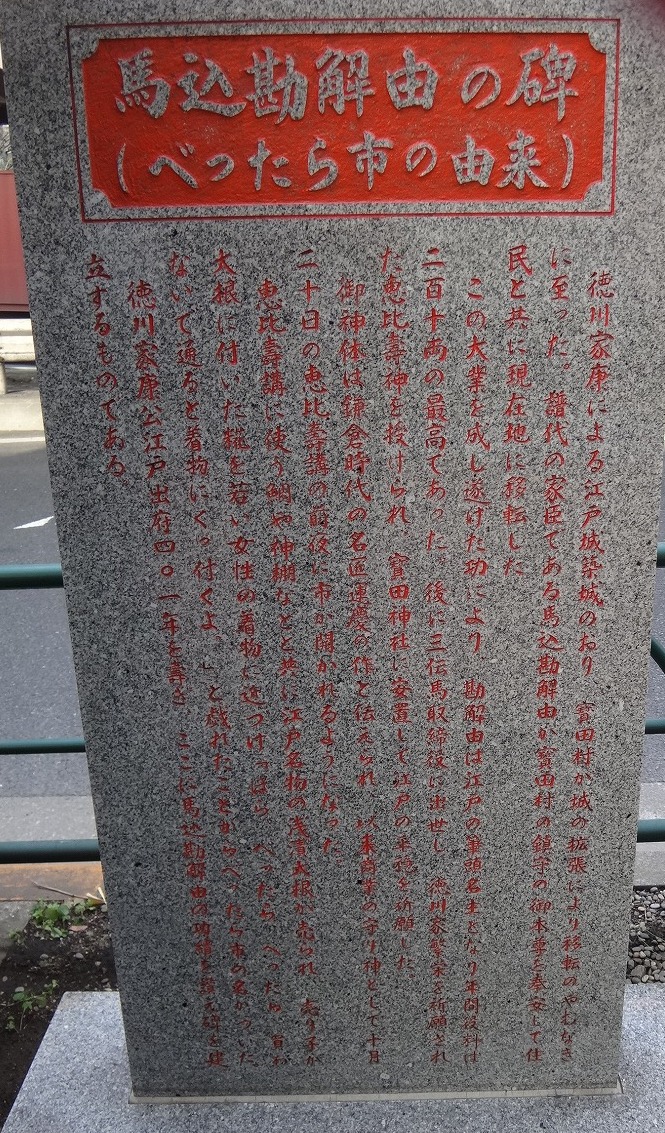 馬込勘解由の碑
(べったら市の由来)
徳川家康による江戸城築城のおり 寳田村が城の拡張により移転のやむなき
に至った。譜代の家臣である馬込勘解由が寳田村の鎮守の御本尊を奉安して住
民と共に現在地に移転した
この大業を成し遂げた功により 勘解由は江戸の筆頭名主となり年間役料は
二百十両の最高であった。後に三伝馬取締役に出世し 徳川家繁栄を祈願され
た恵比壽神を授けられ 寳田神社に安置して江戸の平穏を祈願した。
御神体は鎌倉時代の名匠運慶の作と伝えられ 以来商業の守り神として十月
二十日の恵比壽講の前夜に市が開かれるようになった
恵比壽講に使う鯛や神棚などと共に江戸名物の浅漬大根が売られ 売り子が
大根に付いた糀を若い女性の着物に近づけ「ほら べったら べったら 買わ
ないで通ると着物にくっ付くよ。」と戯れたことからべったら市の名がついた
徳川家康公江戸出府四〇一年を壽ぎ ここに馬込勘解由の功績を 碑を建
立するものである